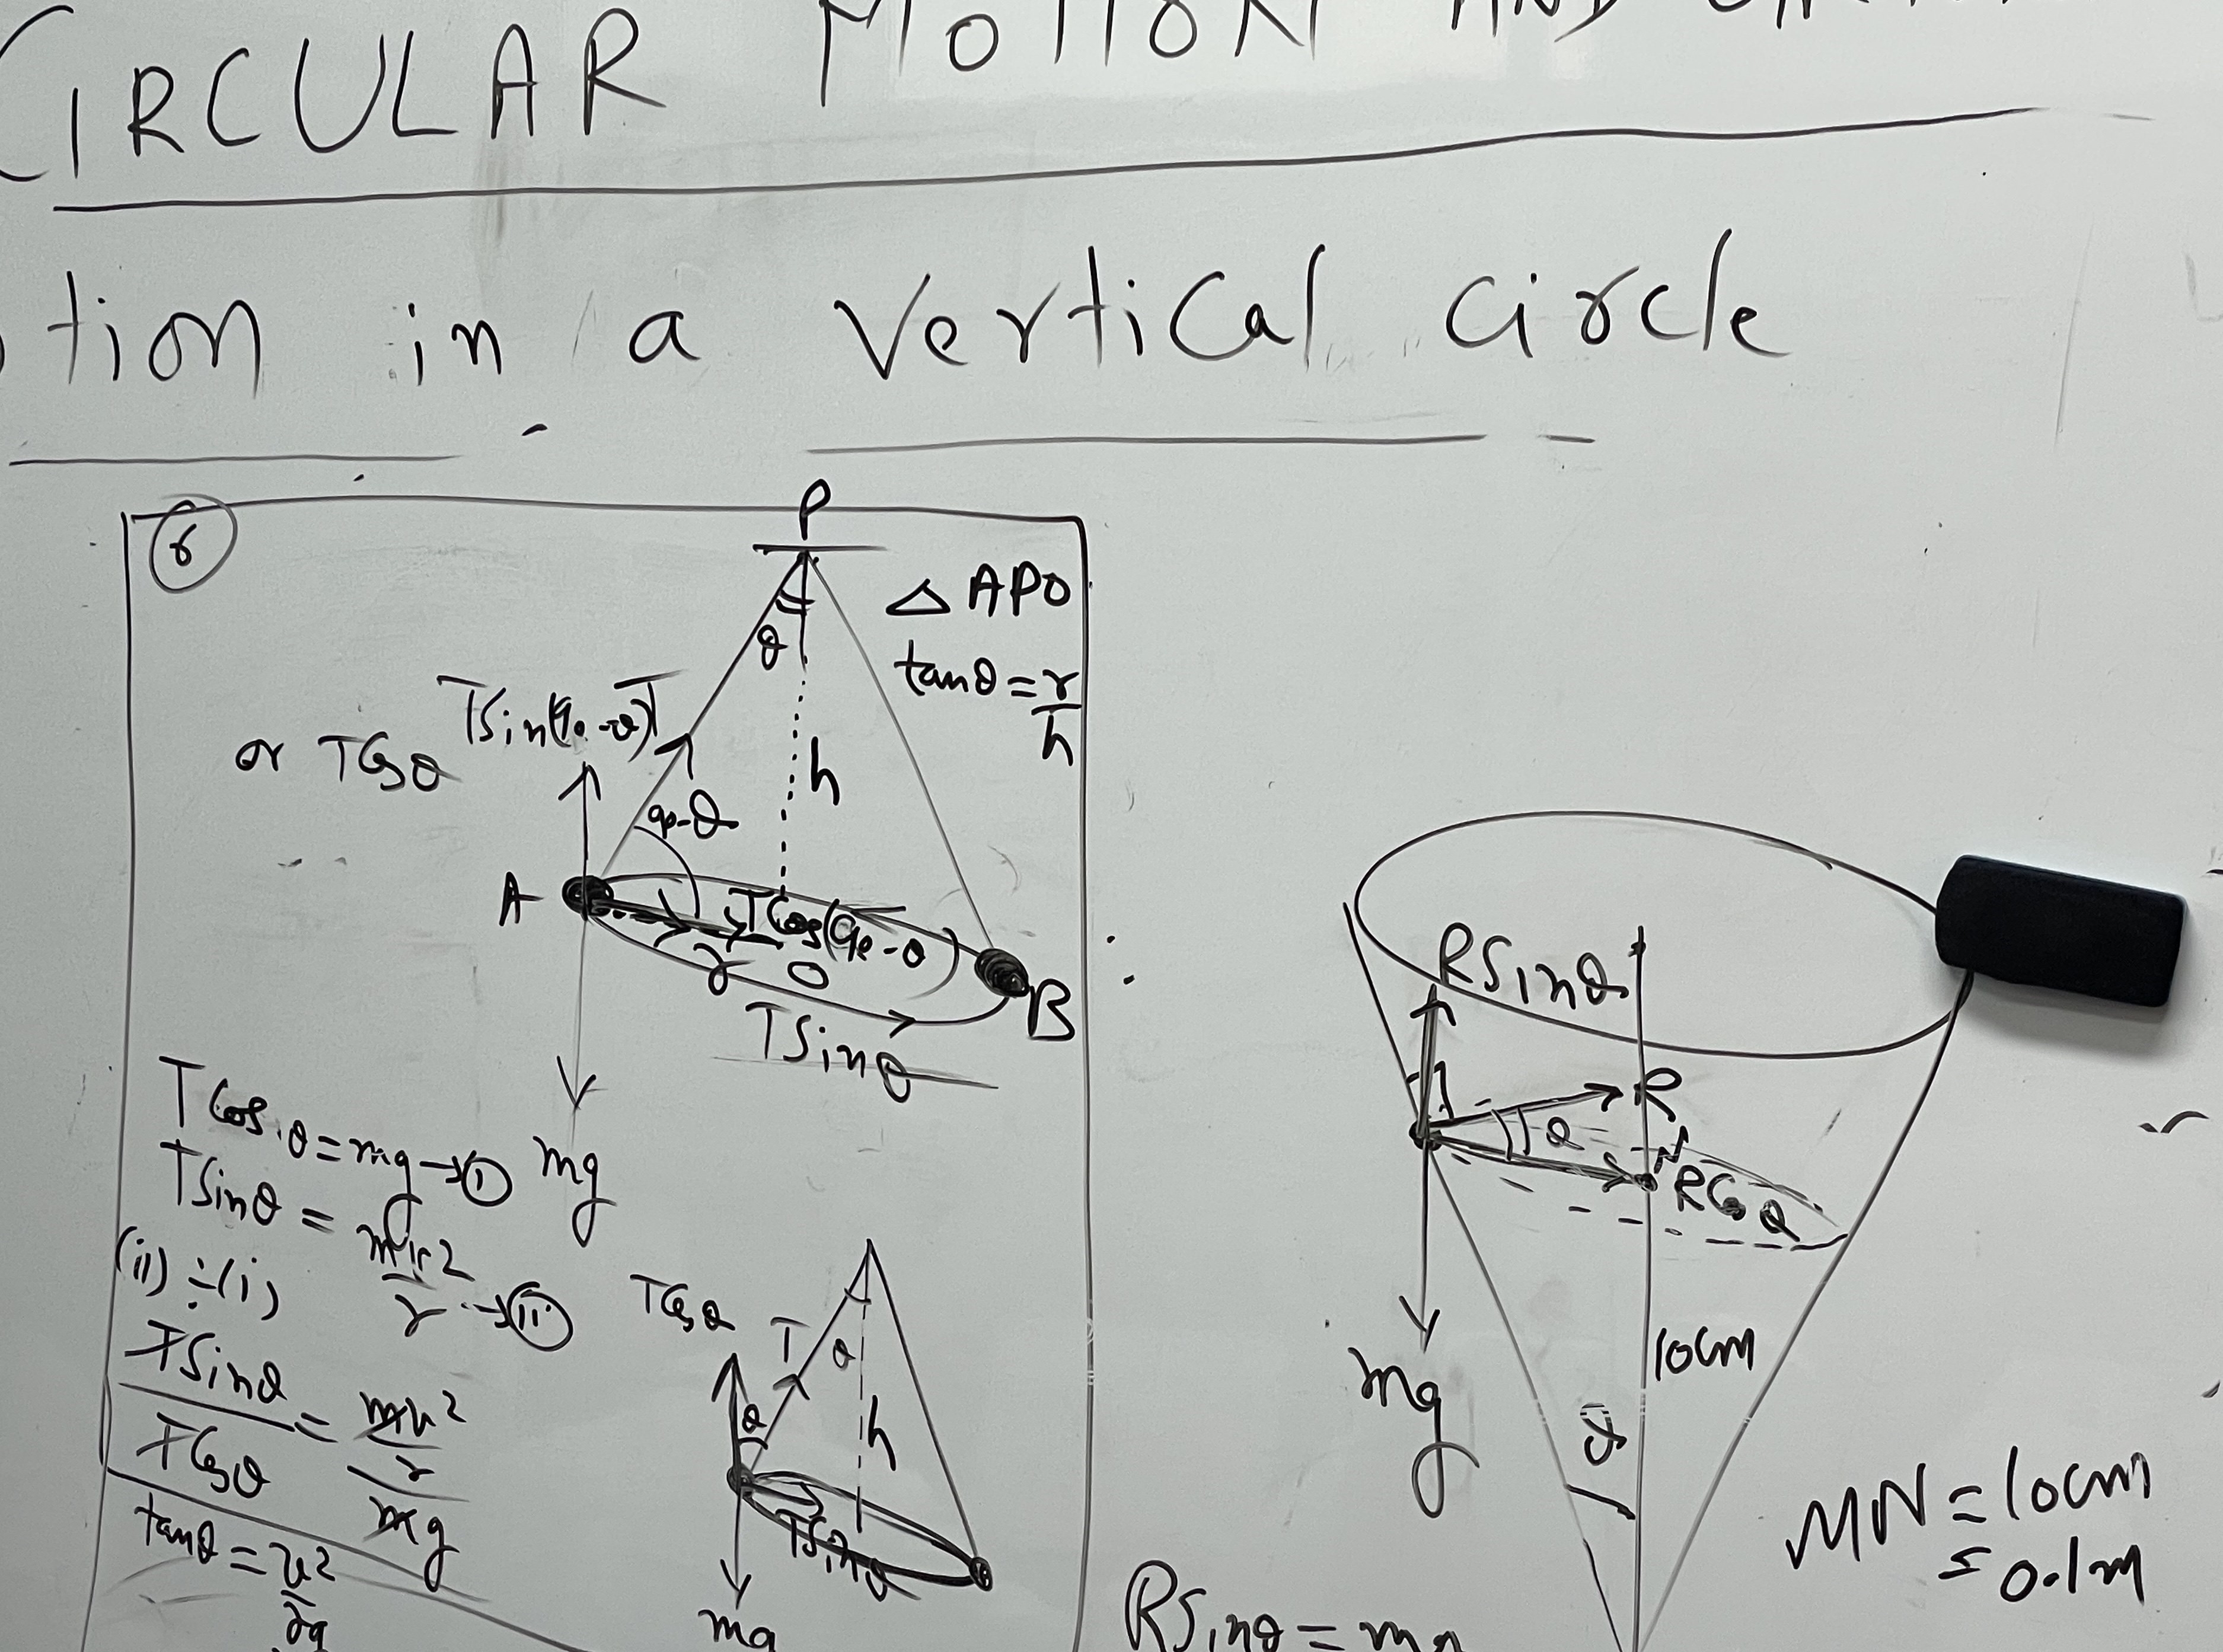 CIRCULAR MOTION AND
tion in a vertical circle
P
△ APO
tanθ = r/h
θ
TSin(90-θ) T
or TCosθ
h
90-θ
A
TCos(90-θ)
r O
B
TSinθ
mg
TCosθ = mg → (i)
TSinθ = mv²/r → (ii)
(ii) ÷ (i)
TSinθ/TCosθ = mv²/r/mg
tanθ = v²/rg
TCosθ
T
θ
θ
h
TSinθ
mg
RSinθ
R
θ
N
RCosθ
mg
10cm
θ
MN = 10cm
= 0.1m
RSinθ = mg